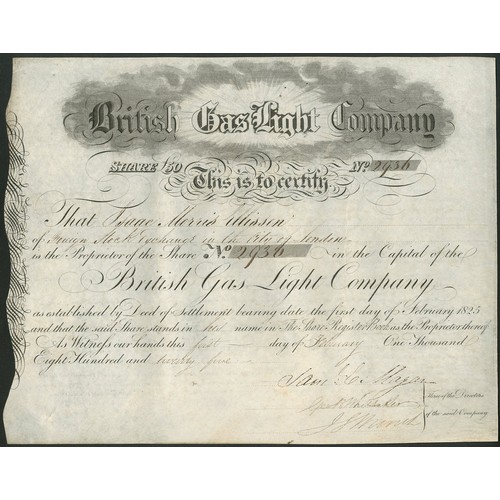 British Gas Light Company
SHARE £50 No. 2936
This is to certify
That Isaac Morris
of Stock Exchange in the City of London
is the Proprietor of the Share No. 2936 in the Capital of the
British Gas Light Company
as established by Deed of Settlement bearing date the first day of February 1825
and that the said Share stands in his name in The Share Register Book as the Proprietor thereof
As Witness our hands this first day of February One Thousand
Eight Hundred and twenty five
Three of the Directors
of the said Company